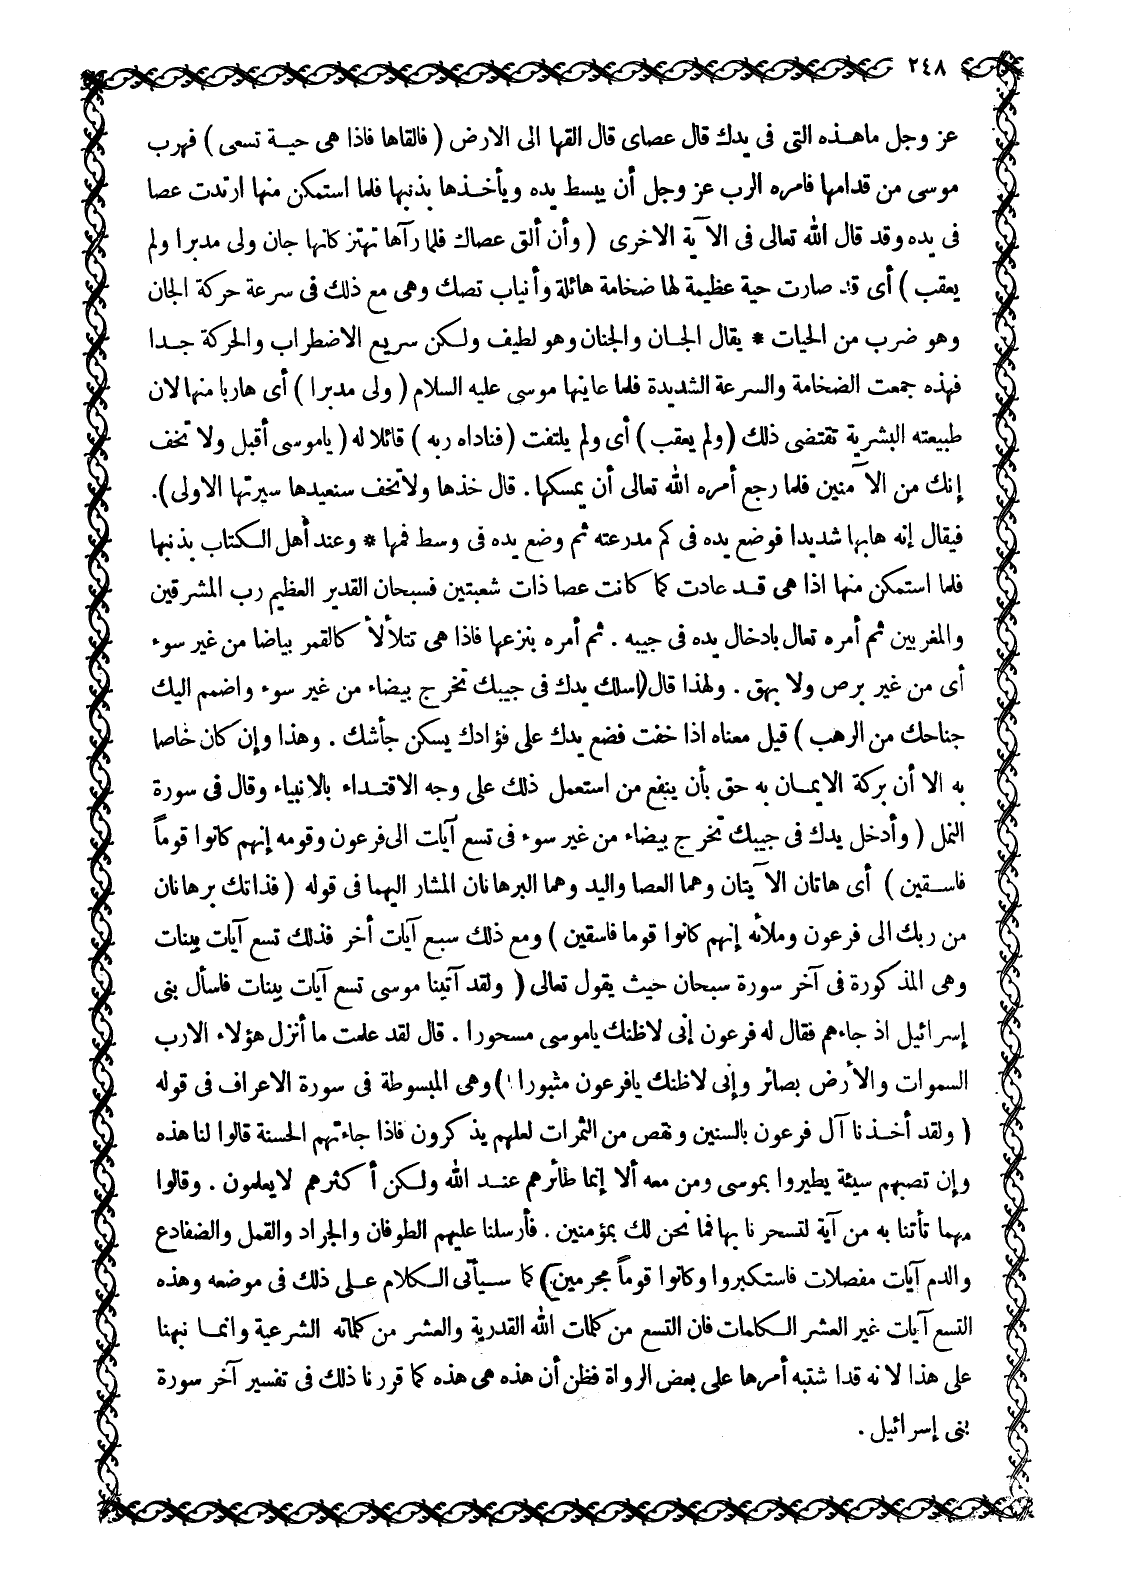 ٢٤٨
عز وجل ماهذه التى فى يدك قال عصاى قال القها الى الارض ( فالقاها فاذا هى حية تسعى ) فهرب
موسى من قدامها فامره الرب عز وجل أن يبسط يده ويأخذها بذنبها فلما استمكن منها ارتدت عصا
فى يده وقد قال الله تعالى فى الآية الاخرى ( وأن ألق عصاك فلما رآها تهتز كانها جان ولى مدبرا ولم
يعقب ) أى قد صارت حية عظيمة لها ضخامة هائلة وأنياب تصك وهى مع ذلك فى سرعة حركة الجان
وهو ضرب من الحيات * يقال الجان والجنان وهو لطيف ولكن سريع الاضطراب والحركة جدا
فهذه جمعت الضخامة والسرعة الشديدة فلما عاينها موسى عليه السلام ( ولى مدبرا ) أى هاربا منها لان
طبيعته البشرية تقتضى ذلك (ولم يعقب ) أى ولم يلتفت (فناداه ربه ) قائلا له ( ياموسى أقبل ولا تخف
إنك من الآمنين فلما رجع أمره الله تعالى أن يمسكها . قال خذها ولاتخف سنعيدها سيرتها الاولى).
فيقال إنه هابها شديدا فوضع يده فى كم مدرعته ثم وضع يده فى وسط فمها * وعند أهل الكتاب بذنبها
فلما استمكن منها اذا هى قد عادت كما كانت عصا ذات شعبتين فسبحان القدير العظيم رب المشرقين
والمغربين ثم أمره تعال بادخال يده فى جيبه . ثم أمره بنزعها فاذا هى تتلألأ كالقمر بياضا من غير سوء
أى من غير برص ولا بهق . ولهذا قال(اسلك يدك فى جيبك تخرج بيضاء من غير سوء واضمم اليك
جناحك من الرهب ) قيل معناه اذا خفت فضع يدك على فؤادك يسكن جأشك . وهذا وإن كان خاصا
به الا أن بركة الايمان به حق بأن ينفع من استعمل ذلك على وجه الاقتداء بالانبياء وقال فى سورة
النمل ( وأدخل يدك فى جيبك تخرج بيضاء من غير سوء فى تسع آيات الى فرعون وقومه إنهم كانوا قوماً
فاسقين ) أى هاتان الآيتان وهما العصا واليد وهما البرهانان المشار اليهما فى قوله ( فذانك برهانان
من ربك الى فرعون وملائه إنهم كانوا قوما فاسقين ) ومع ذلك سبع آيات أخر فذلك تسع آيات بينات
وهى المذكورة فى آخر سورة سبحان حيث يقول تعالى ( ولقد آتينا موسى تسع آيات بينات فاسأل بنى
إسرائيل اذ جاءهم فقال له فرعون إنى لاظنك ياموسى مسحورا . قال لقد علمت ما أنزل هؤلاء الارب
السموات والأرض بصائر وإنى لاظنك يافرعون مثبورا ) وهى المبسوطة فى سورة الاعراف فى قوله
( ولقد أخذنا آل فرعون بالسنين ونقص من الثمرات لعلهم يذكرون فاذا جاءتهم الحسنة قالوا لنا هذه
وإن تصبهم سيئة يطيروا بموسى ومن معه ألا إنما طائرهم عند الله ولكن أكثرهم لايعلمون . وقالوا
مهما تأتنا به من آية لتسحرنا بها فما نحن لك بمؤمنين . فأرسلنا عليهم الطوفان والجراد والقمل والضفادع
والدم آيات مفصلات فاستكبروا وكانوا قوماً مجرمين) كما سيأتى الكلام على ذلك فى موضعه وهذه
التسع آيات غير العشر الكلمات فان التسع من كلمات الله القدرية والعشر من كلماته الشرعية وانما نبهنا
على هذا لانه قد اشتبه أمرها على بعض الرواة فظن أن هذه هى هذه كما قررنا ذلك فى تفسير آخر سورة
بنى إسرائيل .